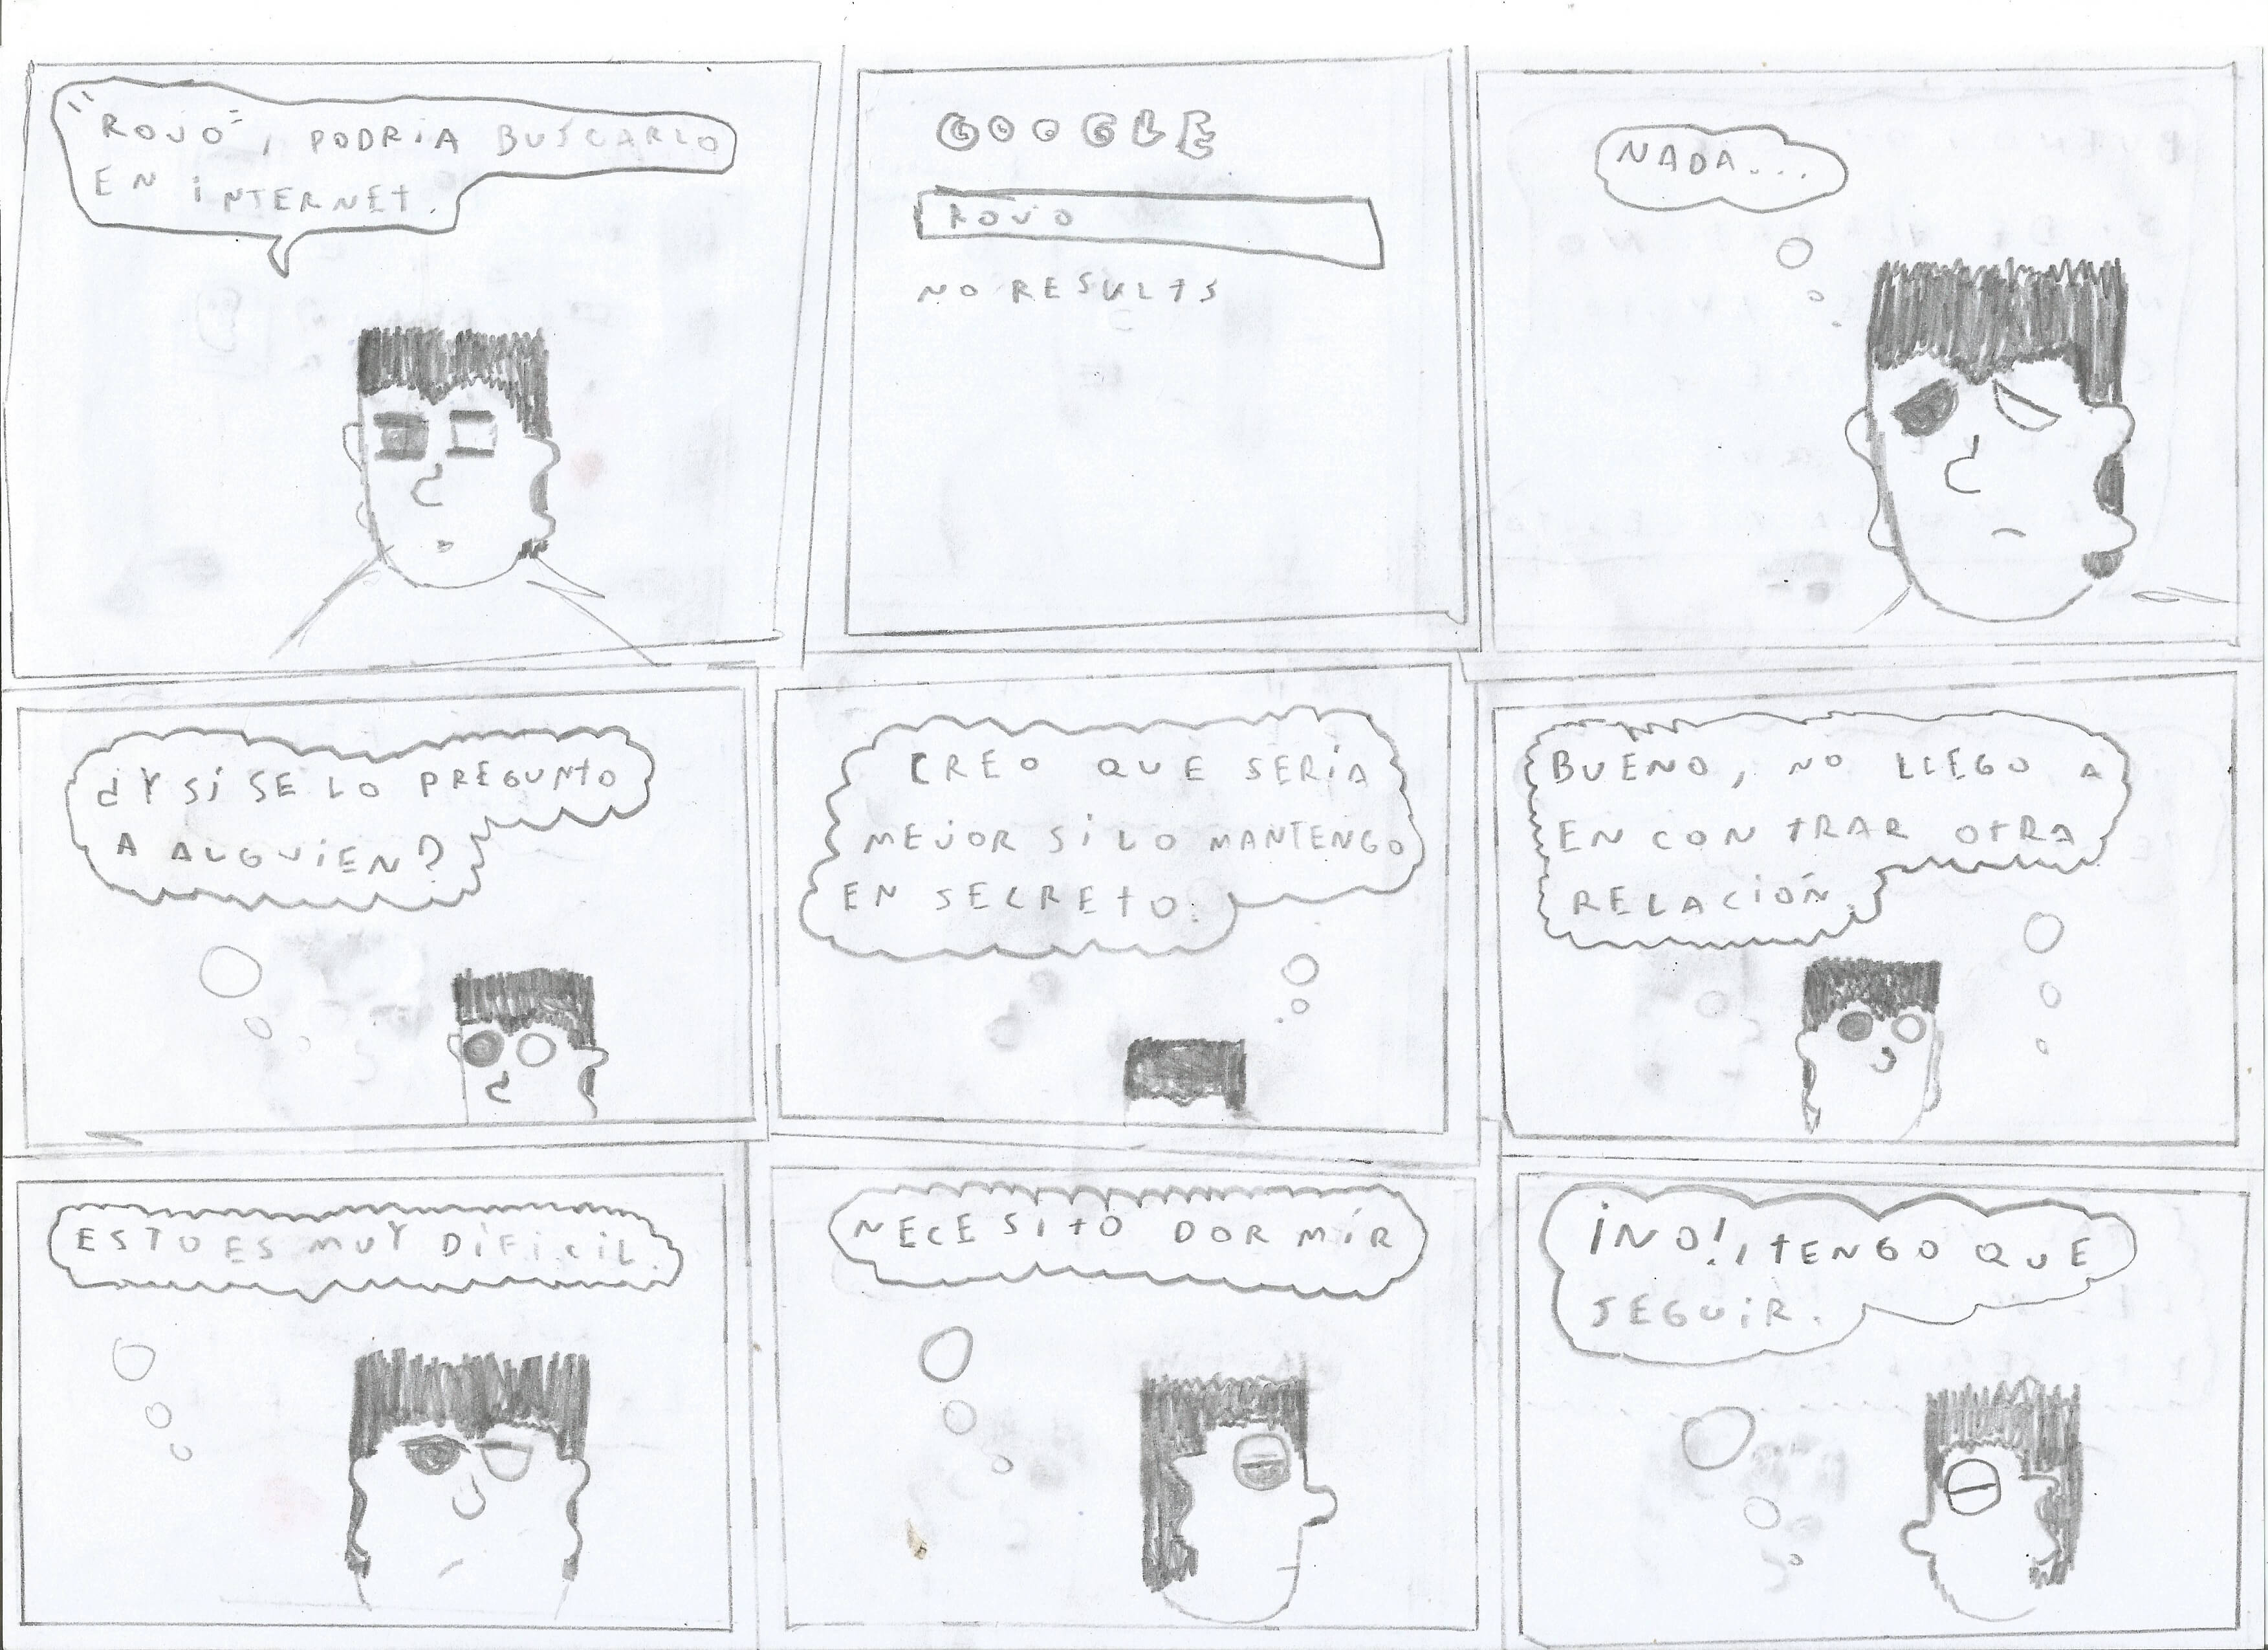 "ROJO", PODRIA BUSCARLO
EN INTERNET.
GOOGLE
ROJO
NO RESULTS
NADA...
¿Y SI SE LO PREGUNTO
A ALGUIEN?
CREO QUE SERÍA
MEJOR SI LO MANTENGO
EN SECRETO.
BUENO, NO LLEGO A
ENCONTRAR OTRA
RELACIÓN.
ESTO ES MUY DIFICIL.
NECESITO DORMIR
¡NO!, TENGO QUE
SEGUIR.